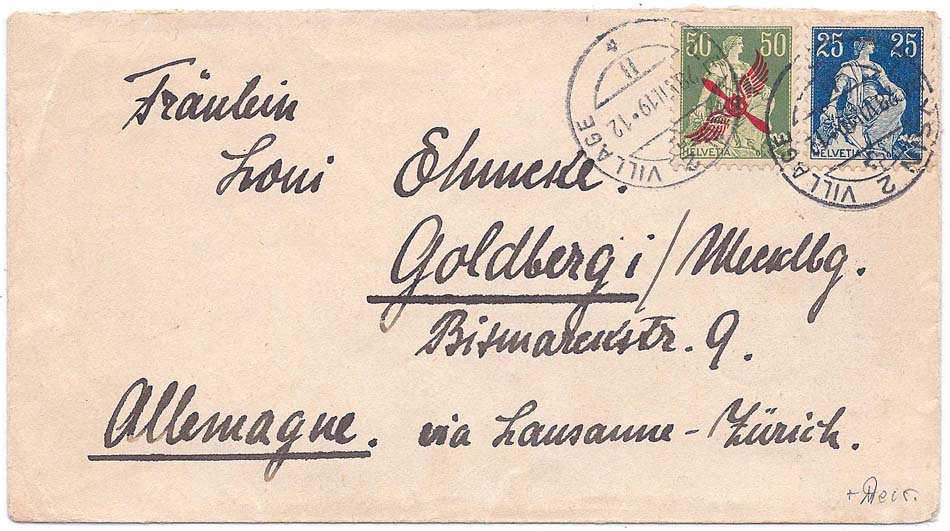 50 50 25 25
HELVETIA HELVETIA
2 VILLAGE 2 VILLAGE
Fräulein
Loni Ehmcke.
Goldberg i/Mecklbg.
Bismarckstr. 9.
Allemagne. via Lausanne-Zürich.